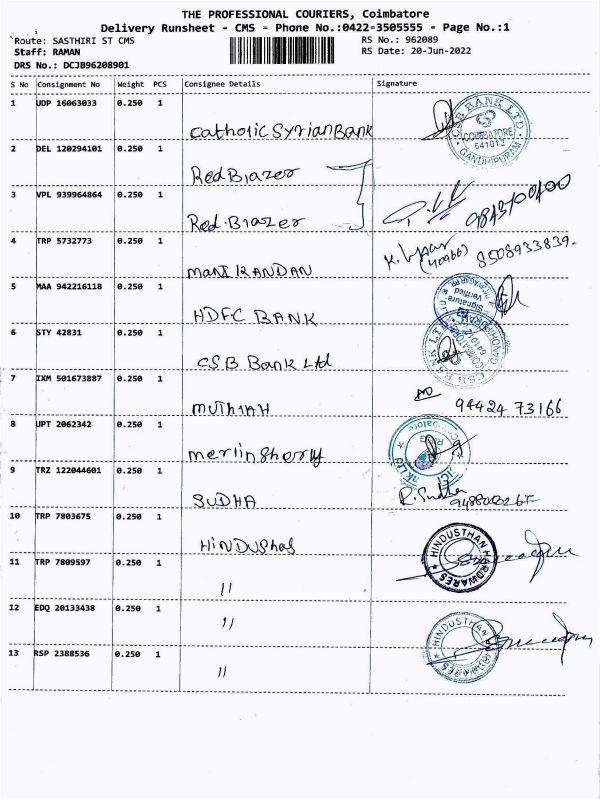 THE PROFESSIONAL COURIERS, Coimbatore
Delivery Runsheet - CMS - Phone No.:0422-3505555 - Page No.:1
Route: SASTHIRI ST CMS
RS No.: 962089
Staff: RAMAN
RS Date: 20-Jun-2022
DRS No.: DCJB96208901
S No Consignment No Weight PCS Consignee Details Signature
1 UDP 16063033 0.250 1 Catholic Syrian Bank
CSB BANK LTD. COIMBATORE 641012 GANDHIPURAM
2 DEL 120294101 0.250 1 Red Blazer
3 VPL 939964864 0.250 1 Red.Blazer
4 TRP 5732773 0.250 1 MANIKANDAN
8508933839
5 MAA 942216118 0.250 1 HDFC BANK
Signature Verified
6 STY 42831 0.250 1 CSB Bank Ltd
CSB BANK LTD
7 IXM 501673887 0.250 1 MUTHIAH 94424 73166
8 UPT 2062342 0.250 1 Merlinsherry
9 TRZ 122044601 0.250 1 SUDHA R. Sudha
10 TRP 7803675 0.250 1 HINDUSHAS
11 TRP 7809597 0.250 1 11
HINDUSTHAN HARDWARES
12 EDQ 20133438 0.250 1 11
13 RSP 2388536 0.250 1 11
HINDUSTHAN HARDWARES